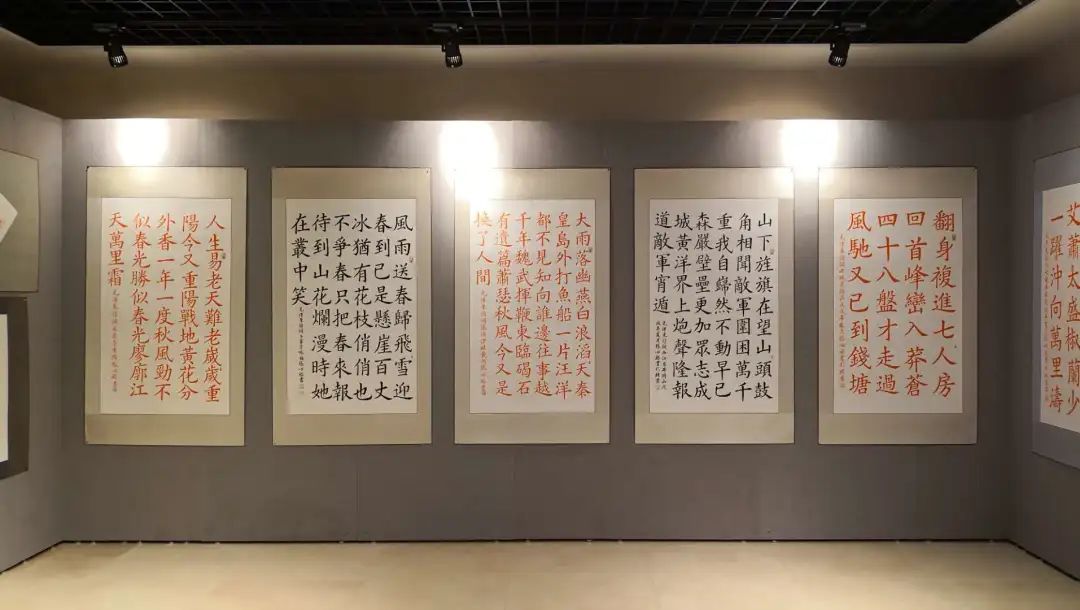 艾蕭太盛椒蘭少
一躍沖向萬里濤
翻身複進七人房
回首峰巒入莽蒼
四十八盤才走過
風馳又已到錢塘
山下旌旗在望山頭鼓
角相聞敵軍圍困萬千
重我自歸然不動早已
森嚴壁壘更加眾志成
城黃洋界上炮聲隆報
道敵軍宵遁
大雨落幽燕白浪滔天秦
皇島外打魚船一片汪洋
都不見知向誰邊往事越
千年魏武揮鞭東臨碣石
有遺篇蕭瑟秋風今又是
換了人間
風雨送春歸飛雪迎
春到已是懸崖百丈
冰猶有花枝俏俏也
不爭春只把春來報
待到山花爛漫時她
在叢中笑
人生易老天難老歲歲重
陽今又重陽戰地黃花分
外香一年一度秋風勁不
似春光勝似春光廖廓江
天萬里霜